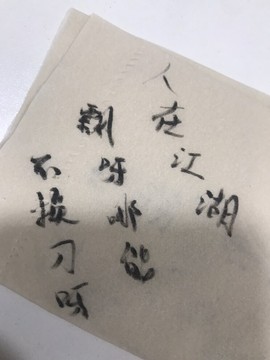 人在江湖
飘呀哪能
不挨刀呀